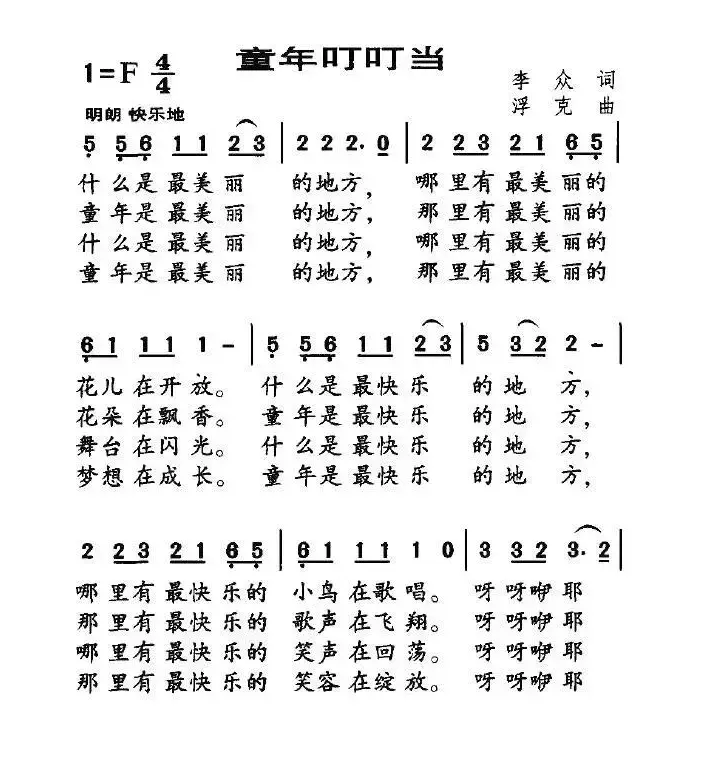 童年叮叮当
1=F 4/4
李 众 词
浮 克 曲
明朗 快乐地
5 5 6 1 1 2 3 | 2 2 2. 0 | 2 2 3 2 1 6 5 |
什么是最美丽 的地方, 哪里有最美丽的
童年是最美丽 的地方, 那里有最美丽的
什么是最美丽 的地方, 哪里有最美丽的
童年是最美丽 的地方, 那里有最美丽的
6 1 1 1 1 - | 5 5 6 1 1 2 3 | 5 3 2 2 - |
花儿在开放。 什么是最快乐 的地方,
花朵在飘香。 童年是最快乐 的地方,
舞台在闪光。 什么是最快乐 的地方,
梦想在成长。 童年是最快乐 的地方,
2 2 3 2 1 6 5 | 6 1 1 1 1 0 | 3 3 2 3. 2 |
哪里有最快乐的 小鸟在歌唱。 呀呀咿耶
那里有最快乐的 歌声在飞翔。 呀呀咿耶
哪里有最快乐的 笑声在回荡。 呀呀咿耶
那里有最快乐的 笑容在绽放。 呀呀咿耶